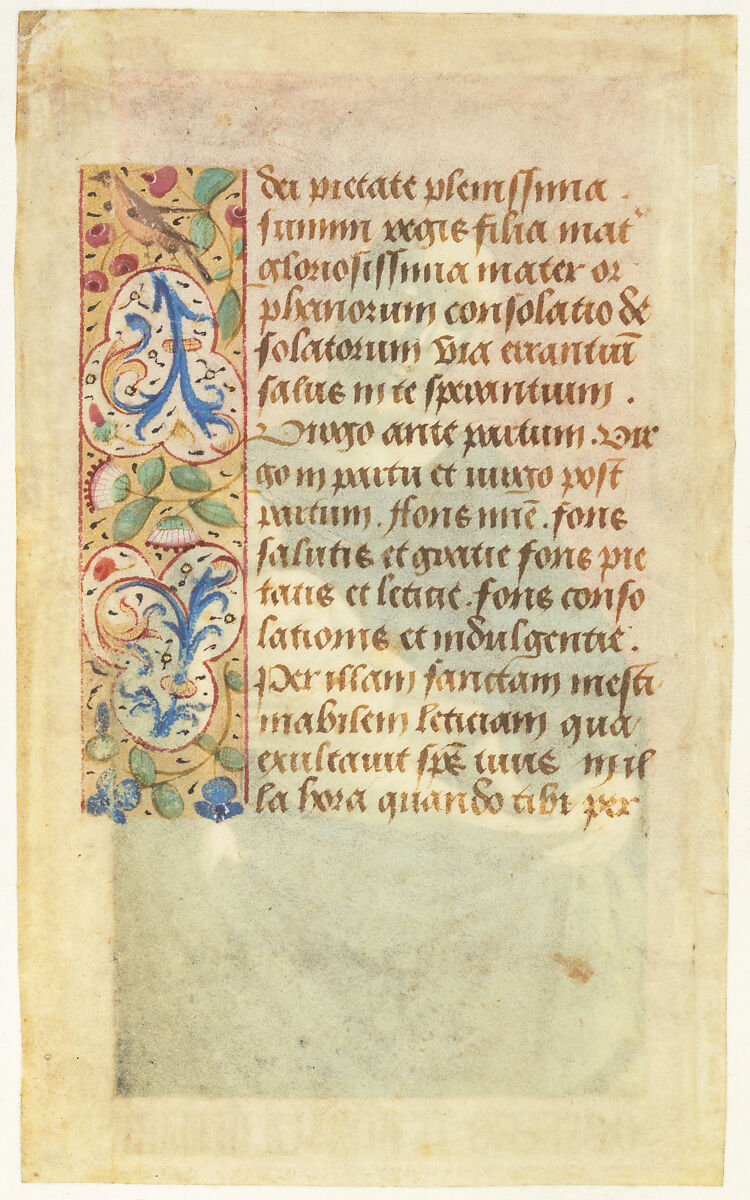 dei pietate plenissima .
summi regis filia mat
gloriosissima mater or
phanorum consolatio de
solatorum via errantiū
salus in te sperantium .
Virgo ante partum . vir
go in partu et uirgo post
partum . ffons mīe . fons
salutis et gratie fons pie
tatis et leticie . fons conso
lationis et indulgentie .
Per illam sanctam inesti
mabilem leticiam qua
exultauit spē tuus in il
la hora quando tibi per